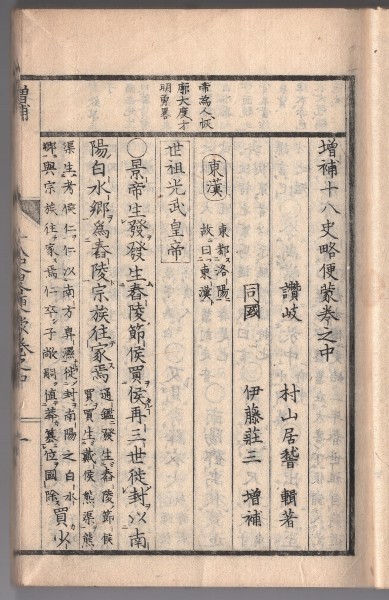 帝為人恢
廓大度才
明勇畧
增補十八史略便蒙卷之中
讃岐 村山居警 輯著
同國 伊藤莊三 增補
東漢
東都洛陽ニ
故曰東漢ト
世祖光武皇帝
○景帝生發發生舂陵節侯買侯再三世徙封以南
陽白水鄉為舂陵宗族往家焉
通鑑發生舂陵節侯
買買生戴侯熊渠熊
渠生考侯仁仁以南方卑濕徙封南陽之白水
鄉與宗族往家焉仁卒子敞嗣值莽篡位國除
買少
增補